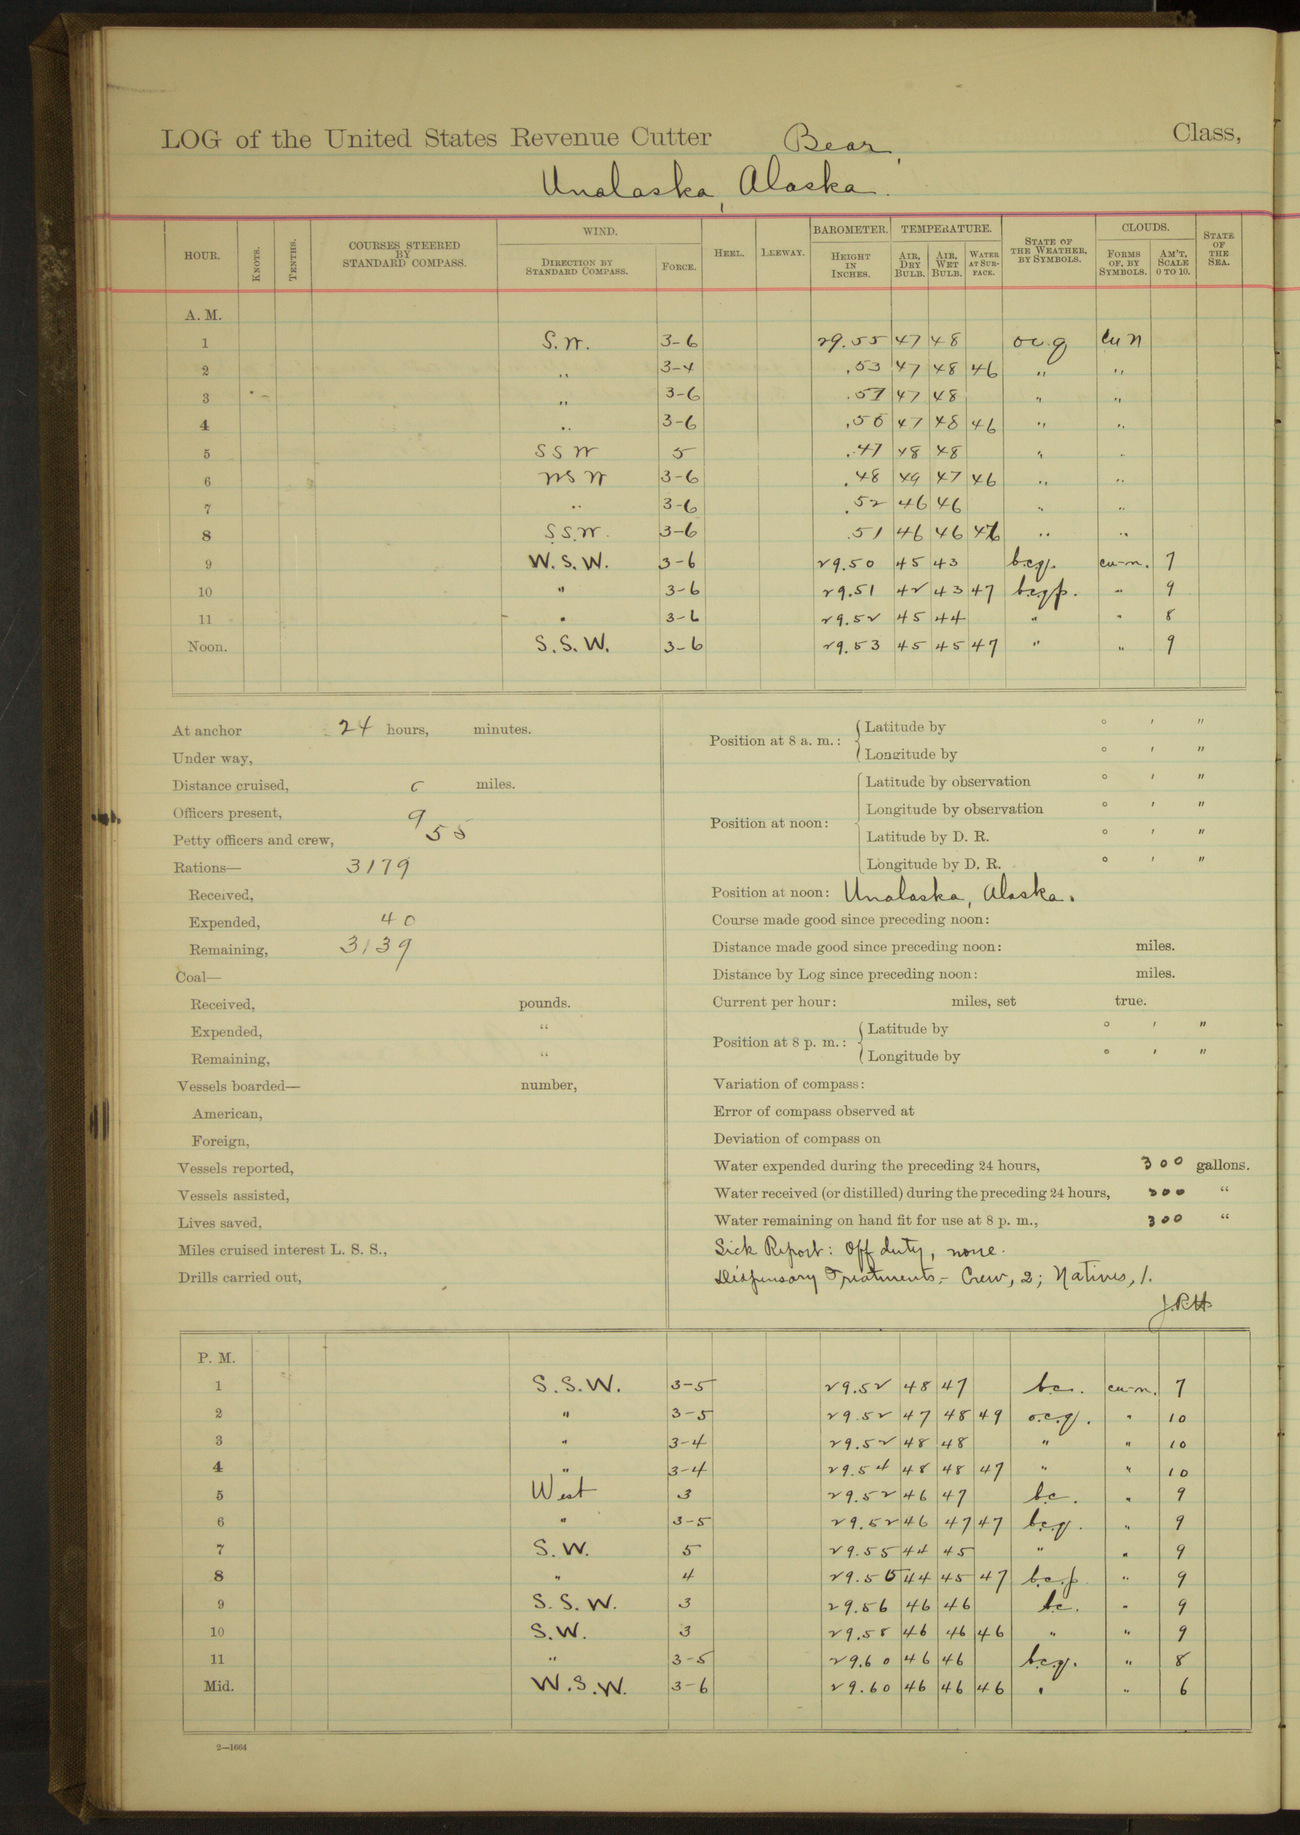 LOG of the United States Revenue Cutter Bear, Class,
Unalaska, Alaska.
HOUR. KNOTS. TENTHS. COURSES STEERED BY STANDARD COMPASS. WIND. DIRECTION BY STANDARD COMPASS. FORCE. HEEL. LEEWAY. BAROMETER. HEIGHT IN INCHES. TEMPERATURE. AIR, DRY BULB. AIR, WET BULB. WATER AT SURFACE. STATE OF THE WEATHER, BY SYMBOLS. CLOUDS. FORMS OF, BY SYMBOLS. AM'T, SCALE 0 TO 10. STATE OF THE SEA.
A. M.
1 S.W. 3-6 29.55 47 48 o.c.q cu n
2 " 3-4 .53 47 48 46 " "
3 " 3-6 .51 47 48 " "
4 " 3-6 .50 47 48 46 " "
5 SSW 5 .47 48 48 " "
6 WSW 3-6 .48 49 47 46 " "
7 " 3-6 .52 46 46 " "
8 S.S.W. 3-6 .51 46 46 46 " "
9 W.S.W. 3-6 29.50 45 43 b.c.q. cu-n. 7
10 " 3-6 29.51 42 43 47 b.c.q.p. " 9
11 " 3-6 29.52 45 44 " " 8
Noon. S.S.W. 3-6 29.53 45 45 47 " " 9
At anchor 24 hours, minutes.
Under way,
Distance cruised, 0 miles.
Officers present, 9
Petty officers and crew, 55
Rations— 3179
Received,
Expended, 40
Remaining, 3139
Coal—
Received, pounds.
Expended, "
Remaining, "
Vessels boarded— number,
American,
Foreign,
Vessels reported,
Vessels assisted,
Lives saved,
Miles cruised interest L. S. S.,
Drills carried out,
Position at 8 a. m.: Latitude by ° ′ ″
Longitude by ° ′ ″
Position at noon: Latitude by observation ° ′ ″
Longitude by observation ° ′ ″
Latitude by D. R. ° ′ ″
Longitude by D. R. ° ′ ″
Position at noon: Unalaska, Alaska.
Course made good since preceding noon:
Distance made good since preceding noon: miles.
Distance by Log since preceding noon: miles.
Current per hour: miles, set true.
Position at 8 p. m.: Latitude by ° ′ ″
Longitude by ° ′ ″
Variation of compass:
Error of compass observed at
Deviation of compass on
Water expended during the preceding 24 hours, 300 gallons.
Water received (or distilled) during the preceding 24 hours, "
Water remaining on hand fit for use at 8 p. m., 300 "
Sick Report: Off duty, none.
Dispensary Treatments,- Crew, 2; Natives, 1.
J.R.H
P. M.
1 S.S.W. 3-5 29.52 48 47 b.c. cu-n. 7
2 " 3-5 29.52 47 48 49 o.c.q. " 10
3 " 3-4 29.52 48 48 " " 10
4 " 3-4 29.54 48 48 47 " " 10
5 West 3 29.52 46 47 b.c. " 9
6 " 3-5 29.52 46 47 47 b.c.q. " 9
7 S.W. 5 29.55 44 45 " " 9
8 " 4 29.55 44 45 47 b.c.p. " 9
9 S.S.W. 3 29.56 46 46 b.c. " 9
10 S.W. 3 29.58 46 46 46 " " 9
11 " 3-5 29.60 46 46 b.c.q. " 8
Mid. W.S.W. 3-6 29.60 46 46 46 " " 6
2—1664